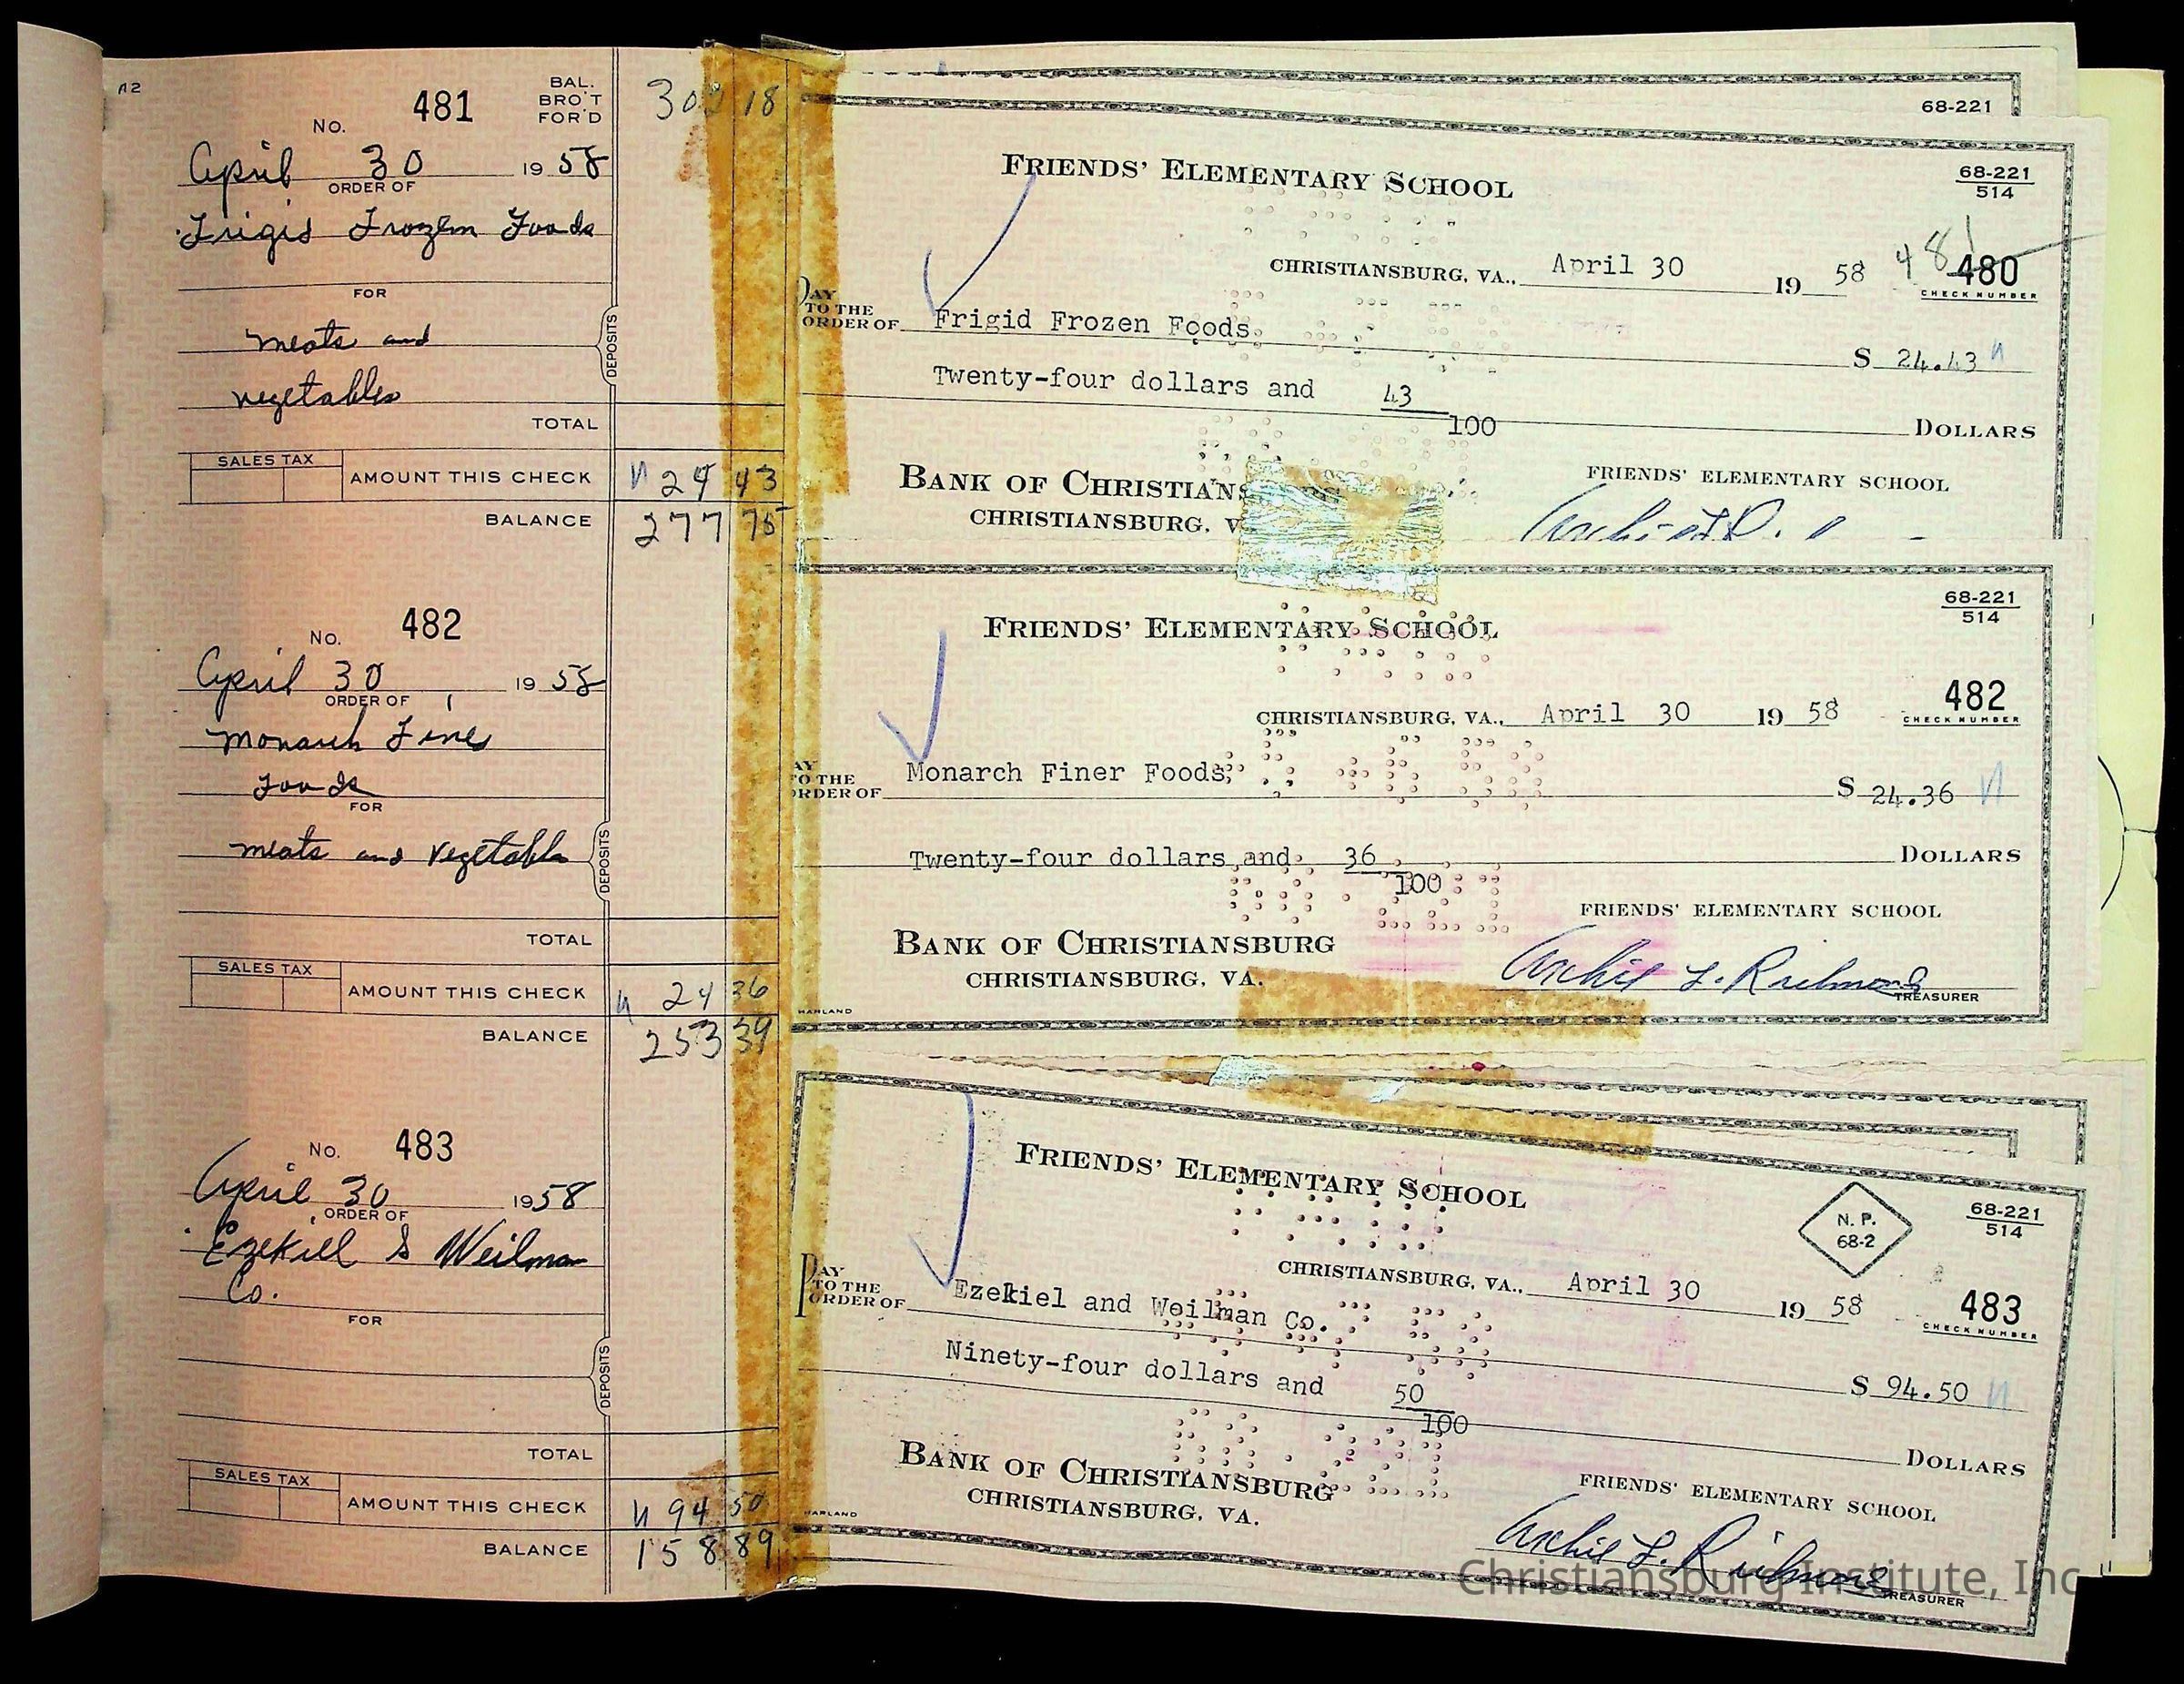 No. 481
BAL. BRO'T FOR'D 302 18
April 30 19 58
ORDER OF
Frigid Frozen Foods
FOR
meats and
vegetables
DEPOSITS
TOTAL
SALES TAX
AMOUNT THIS CHECK 24 43
BALANCE 277 75
No. 482
April 30 19 58
ORDER OF
Monarch Fine
Foods
FOR
meats and vegetable
DEPOSITS
TOTAL
SALES TAX
AMOUNT THIS CHECK 24 36
BALANCE 253 39
No. 483
April 30 1958
ORDER OF
Ezekiel & Weilman
Co.
FOR
DEPOSITS
TOTAL
SALES TAX
AMOUNT THIS CHECK 94 50
BALANCE 158 89
68-221
FRIENDS' ELEMENTARY SCHOOL
68-221
514
CHRISTIANSBURG, VA., April 30 19 58
481
480
CHECK NUMBER
PAY TO THE ORDER OF Frigid Frozen Foods
$ 24.43
Twenty-four dollars and 43
100 DOLLARS
BANK OF CHRISTIANS
CHRISTIANSBURG, V
FRIENDS' ELEMENTARY SCHOOL
FRIENDS' ELEMENTARY SCHOOL
68-221
514
CHRISTIANSBURG, VA., April 30 19 58
482
CHECK NUMBER
AY TO THE ORDER OF Monarch Finer Foods,
$ 24.36
Twenty-four dollars and 36
100 DOLLARS
FRIENDS' ELEMENTARY SCHOOL
BANK OF CHRISTIANSBURG
CHRISTIANSBURG, VA.
Archie L. Richmond
TREASURER
HARLAND
FRIENDS' ELEMENTARY SCHOOL
N. P.
68-2
68-221
514
CHRISTIANSBURG, VA., April 30 19 58
483
CHECK NUMBER
PAY TO THE ORDER OF Ezekiel and Weilman Co.
$ 94.50
Ninety-four dollars and 50
100 DOLLARS
BANK OF CHRISTIANSBURG
CHRISTIANSBURG, VA.
FRIENDS' ELEMENTARY SCHOOL
HARLAND
Archie L. Richmond
TREASURER
Christiansburg Institute, Inc